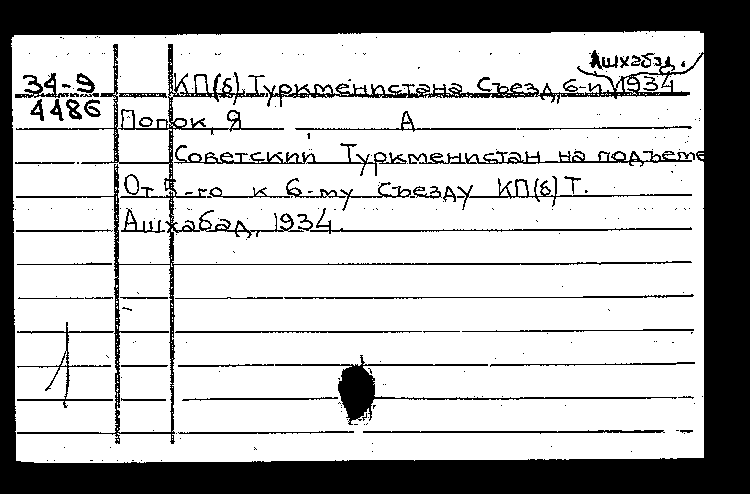 Ашхабад.
34-9 КП(б) Туркменистана Съезд, 6-й, 1934
4486
Попок, Я А
Советский Туркменистан на подъеме
От 5-го к 6-му съезду КП(б)Т.
Ашхабад, 1934.
1